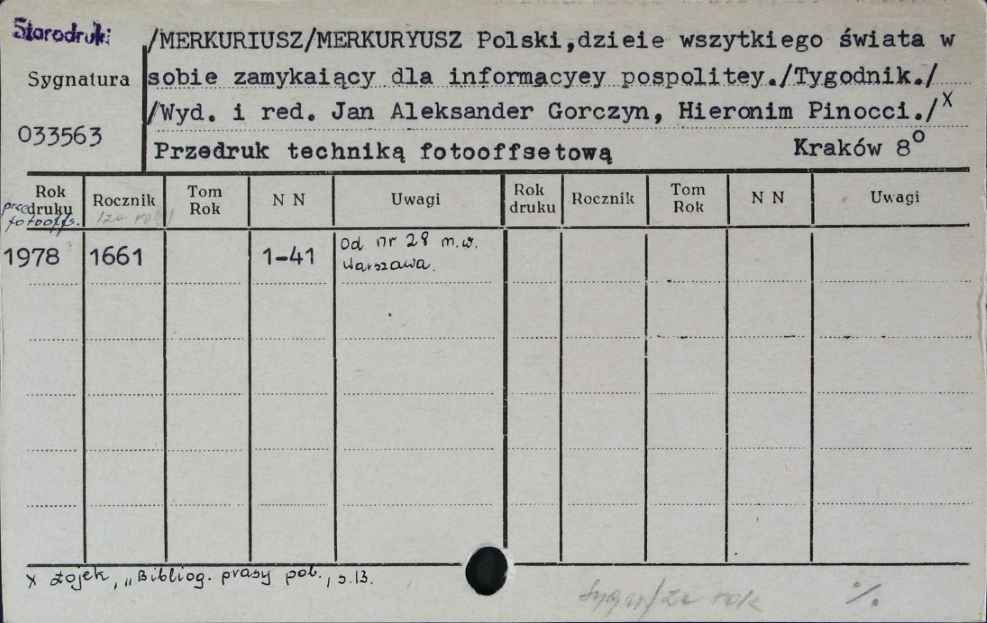 Starodruki
/MERKURIUSZ/MERKURYUSZ Polski,dzieie wszytkiego świata w
Sygnatura
sobie zamykaiący dla informacyey pospolitey./Tygodnik./
/Wyd. i red. Jan Aleksander Gorczyn, Hieronim Pinocci./x
033563
Przedruk techniką fotooffsetową Kraków 8°
Rok druku Rocznik Tom Rok N N Uwagi Rok druku Rocznik Tom Rok N N Uwagi
przedr. fotooffs. /za rok/
1978 1661 1-41 Od nr 28 m.w.
Warszawa.
x Łojek, „Bibliog. prasy pol.", s.13.
za rok %